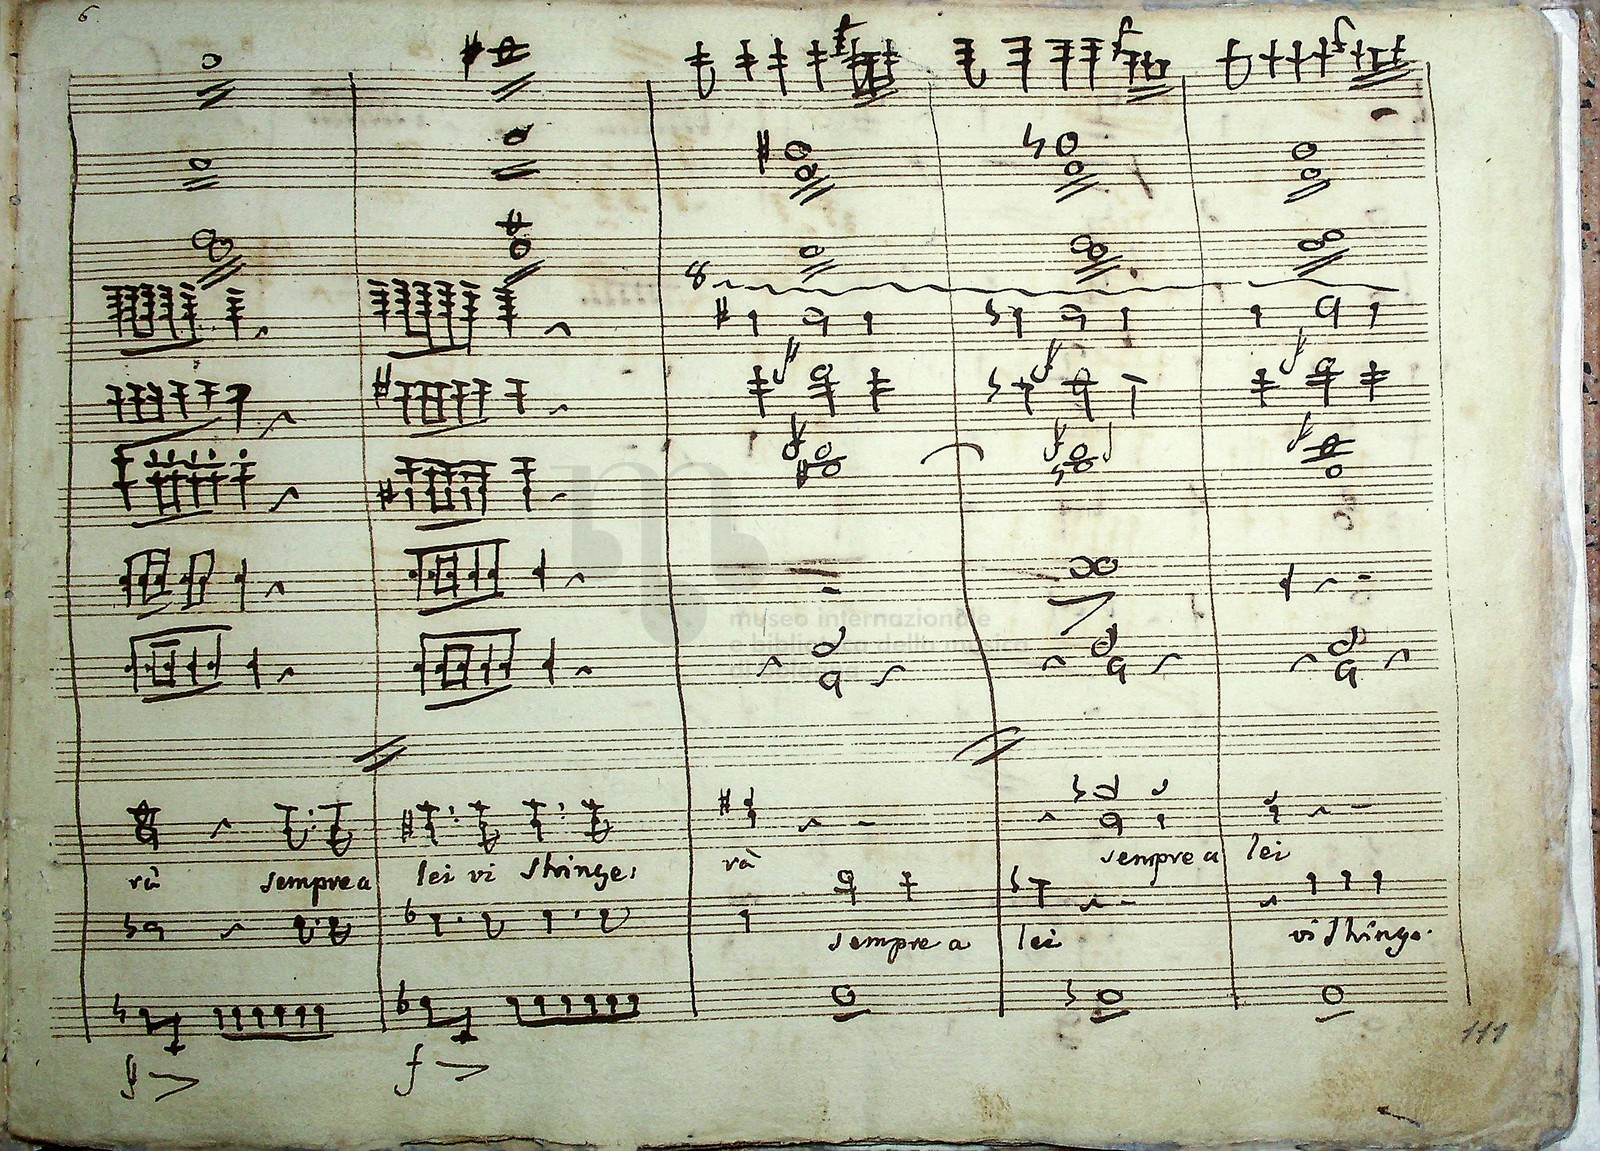 6
8
museo internazionale
e biblioteca della musica
di bologna
rà sempre a lei vi stringe, rà sempre a lei
sempre a lei vi stringe.
f f
111